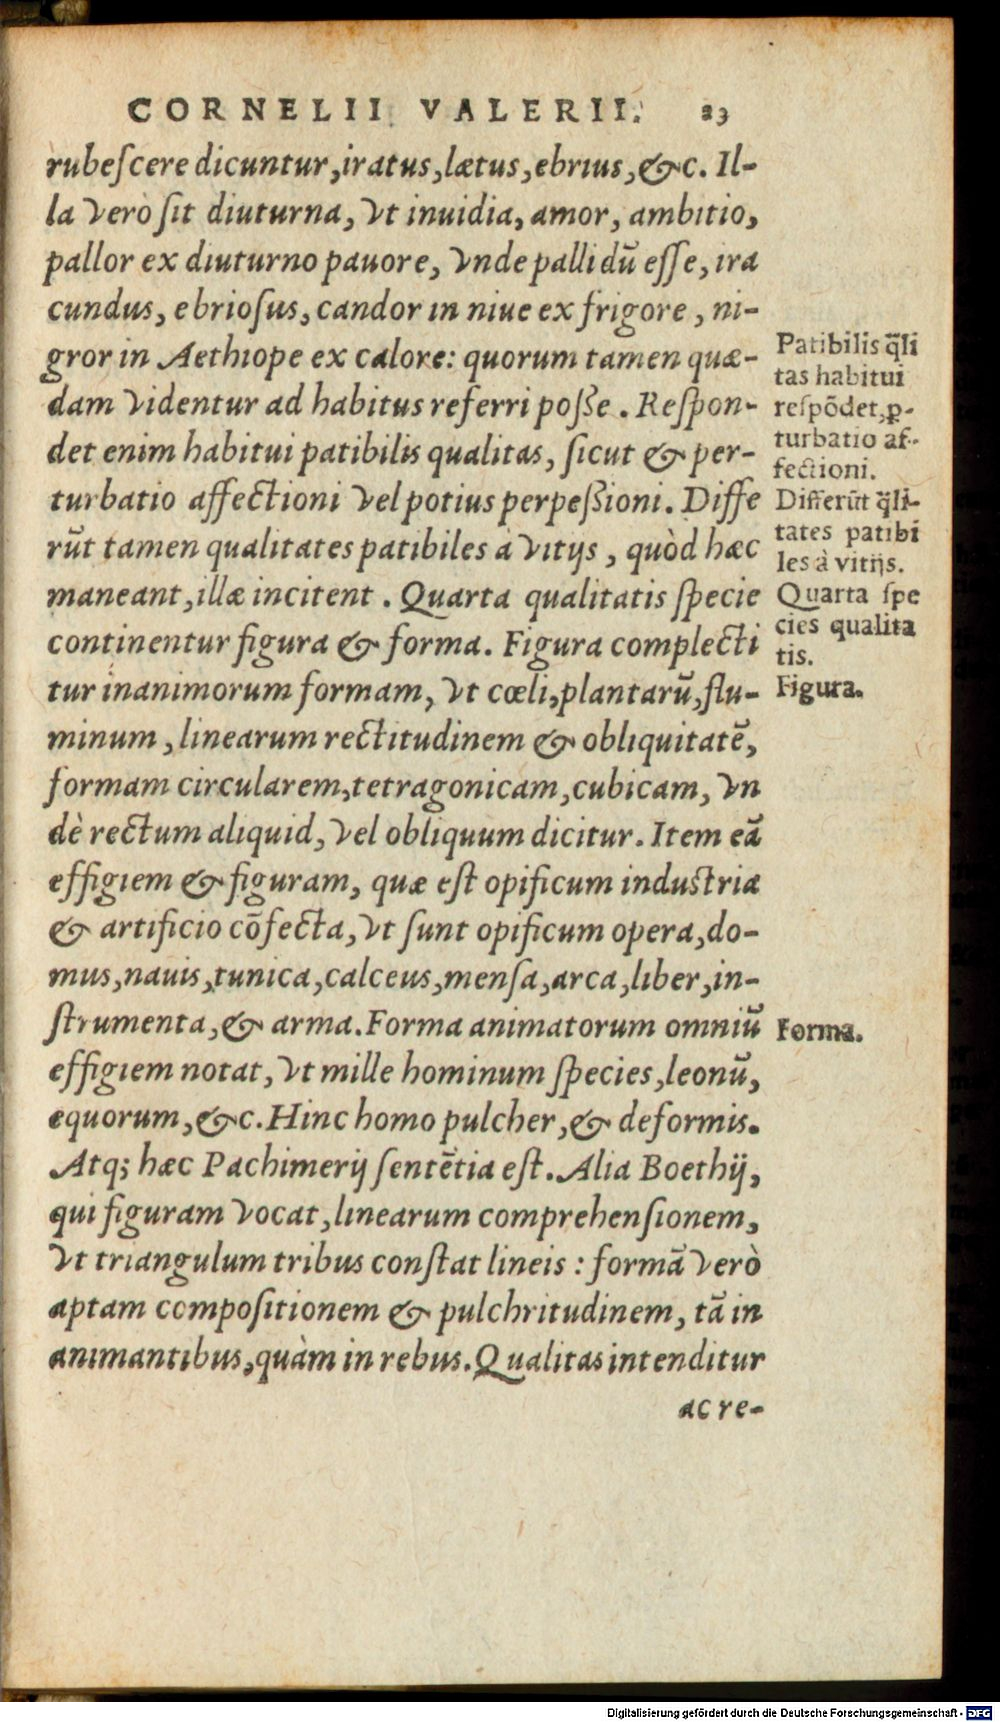 CORNELII VALERII. 23
rubeſcere dicuntur, iratus, lætus, ebrius, &c. Il-
la verò ſit diuturna, vt inuidia, amor, ambitio,
pallor ex diuturno pauore, vnde pallidū eſſe, ira
cundus, ebrioſus, candor in niue ex frigore, ni-
gror in Aethiope ex calore: quorum tamen quæ-
dam videntur ad habitus referri poſſe. Reſpon-
det enim habitui patibilis qualitas, ſicut & per-
turbatio affectioni vel potius perpeſſioni. Diffe
rūt tamen qualitates patibiles à vitijs, quòd hæc
maneant, illæ incitent. Quarta qualitatis ſpecie
continentur figura & forma. Figura complecti
tur inanimorum formam, vt cœli, plantarū, flu-
minum, linearum rectitudinem & obliquitatē,
formam circularem, tetragonicam, cubicam, vn
dè rectum aliquid, vel obliquum dicitur. Item eā
effigiem & figuram, quæ eſt opificum induſtria
& artificio cōfecta, vt ſunt opificum opera, do-
mus, nauis, tunica, calceus, menſa, arca, liber, in-
ſtrumenta, & arma. Forma animatorum omniū
effigiem notat, vt mille hominum ſpecies, leonū,
equorum, &c. Hinc homo pulcher, & deformis.
Atq; hæc Pachimerij ſentētia eſt. Alia Boethij,
qui figuram vocat, linearum comprehenſionem,
vt triangulum tribus conſtat lineis: formā verò
aptam compoſitionem & pulchritudinem, tā in
animantibus, quàm in rebus. Qualitas intenditur
ac re-
Patibilis q̃li
tas habitui
reſpōdet, ꝑ-
turbatio af-
fectioni.
Differūt q̃li-
tates patibi
les à vitijs.
Quarta ſpe
cies qualita
tis.
Figura.
Forma.
Digitalisierung gefördert durch die Deutsche Forschungsgemeinschaft - DFG